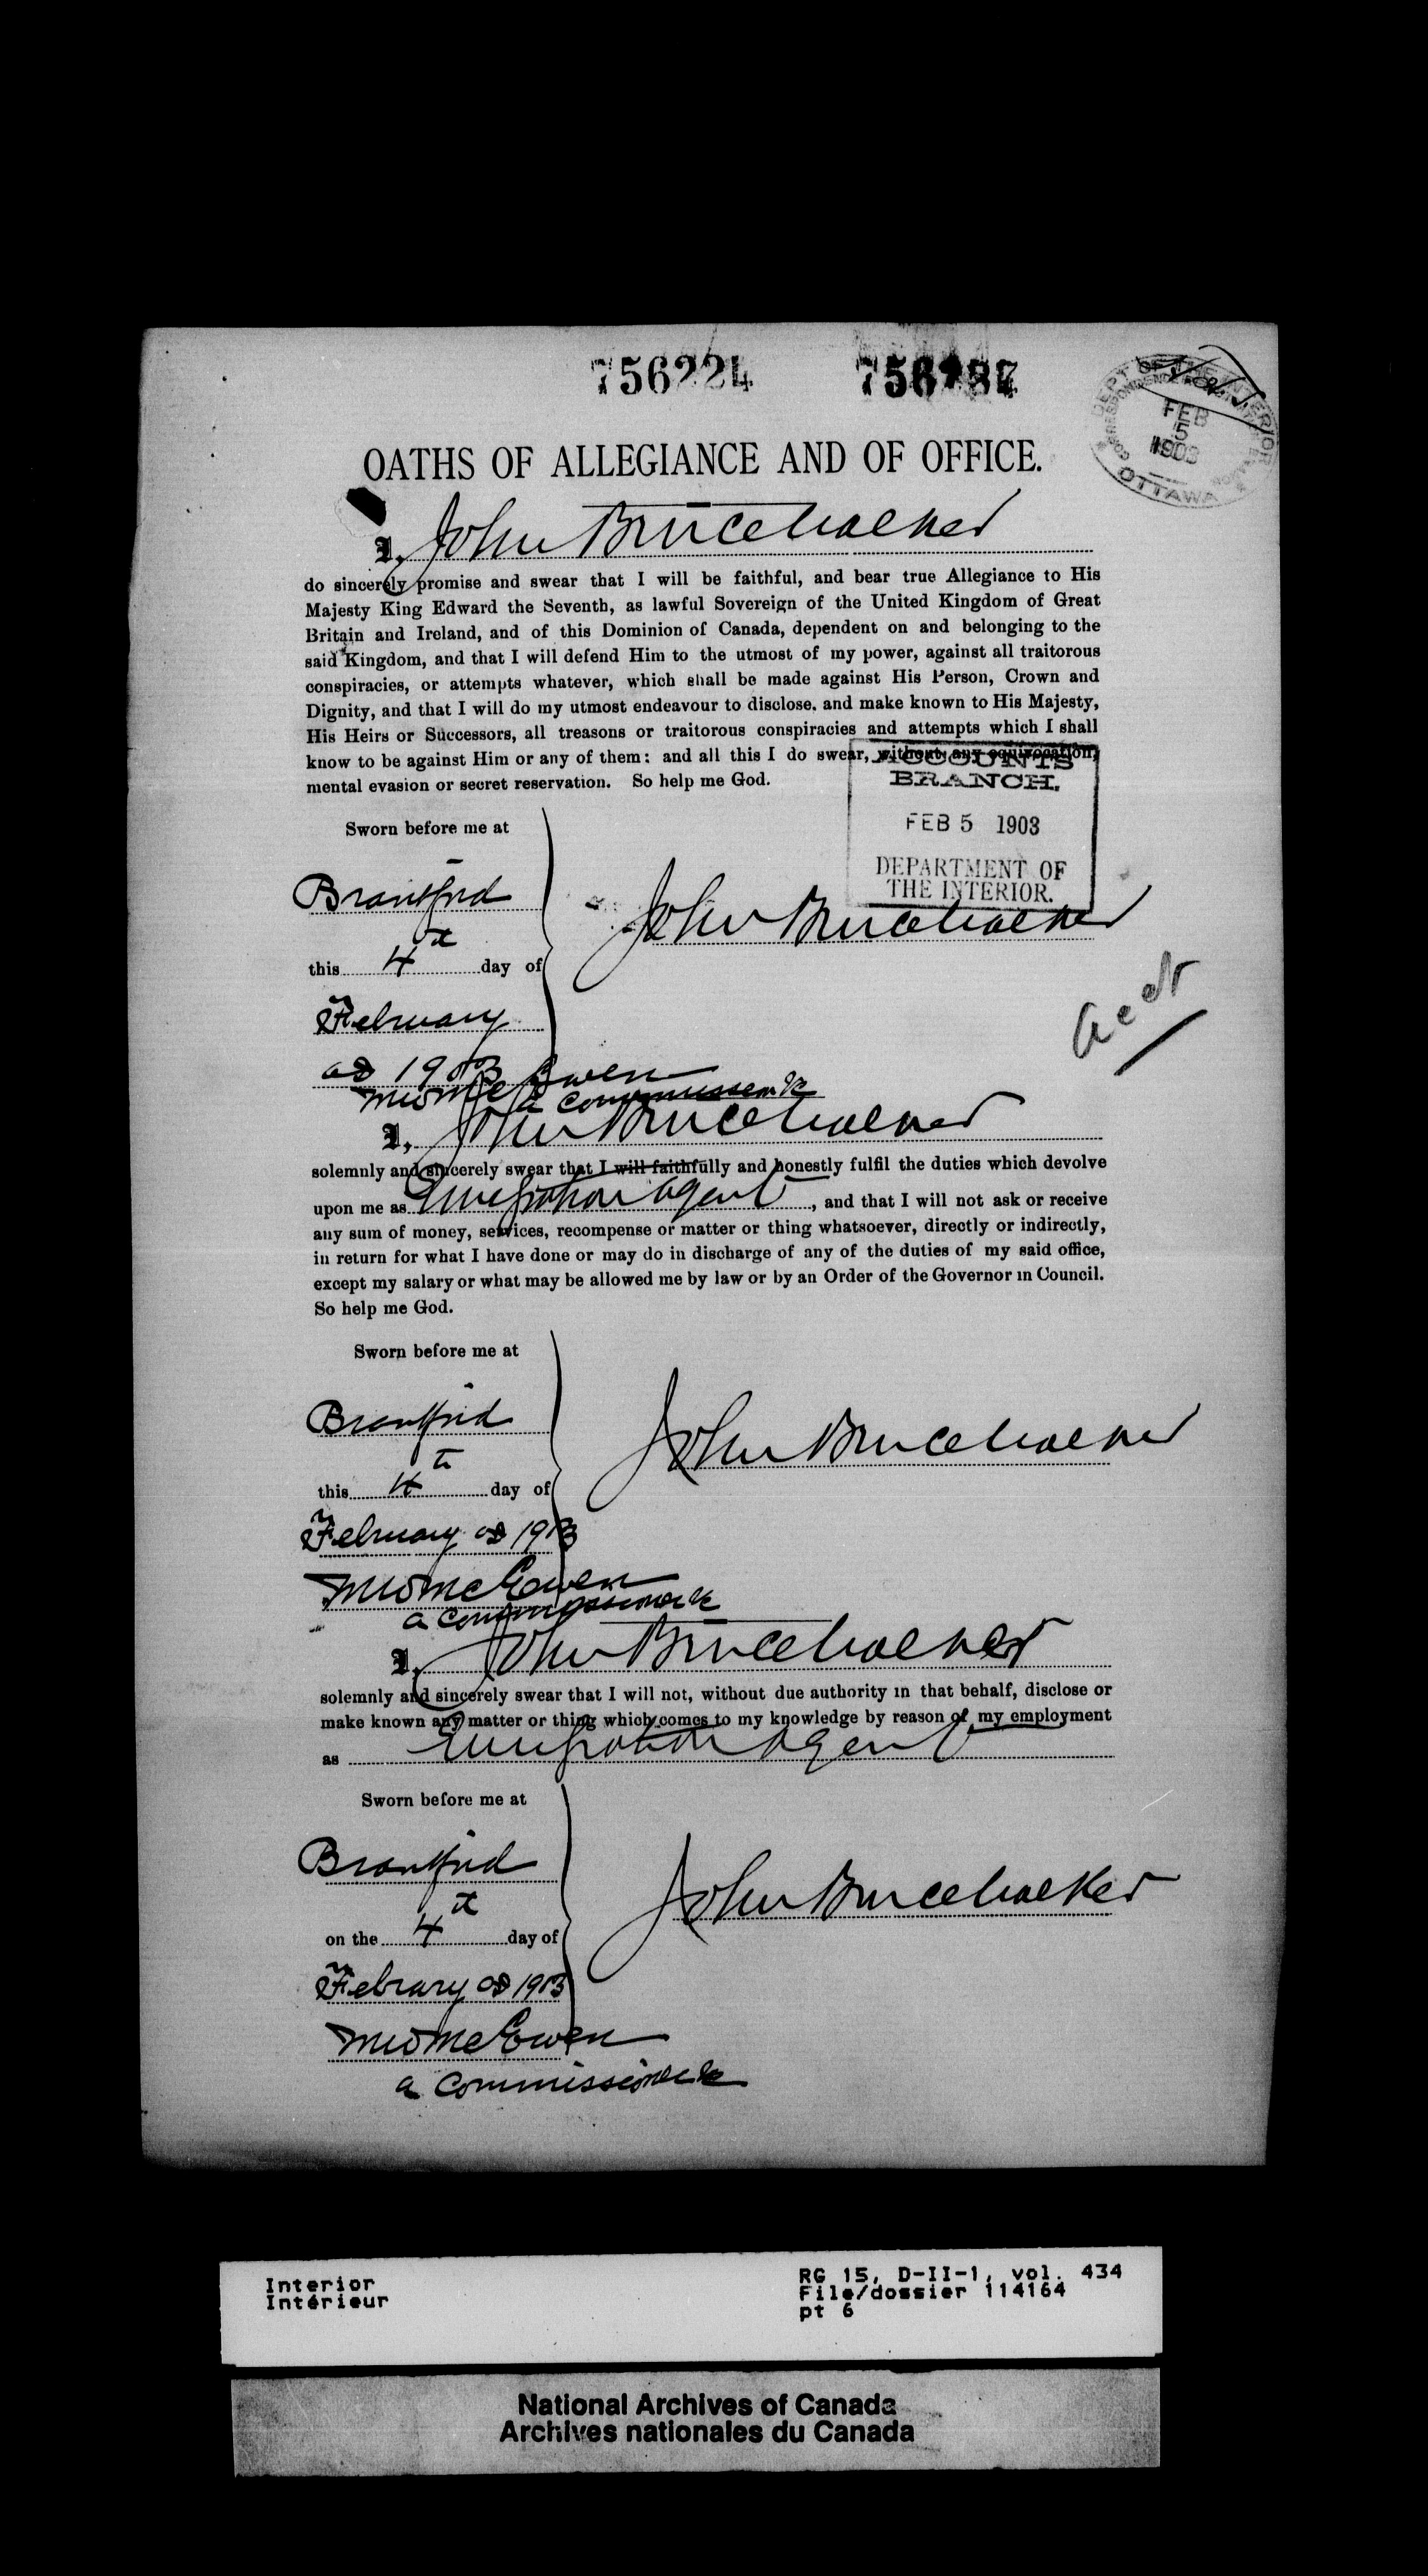 756224
DEPT OF THE INTERIOR
FEB
5
1903
OTTAWA
OATHS OF ALLEGIANCE AND OF OFFICE.
I, John Bruce Walker
do sincerely promise and swear that I will be faithful, and bear true Allegiance to His
Majesty King Edward the Seventh, as lawful Sovereign of the United Kingdom of Great
Britain and Ireland, and of this Dominion of Canada, dependent on and belonging to the
said Kingdom, and that I will defend Him to the utmost of my power, against all traitorous
conspiracies, or attempts whatever, which shall be made against His Person, Crown and
Dignity, and that I will do my utmost endeavour to disclose, and make known to His Majesty,
His Heirs or Successors, all treasons or traitorous conspiracies and attempts which I shall
know to be against Him or any of them: and all this I do swear, without any equivocation,
mental evasion or secret reservation. So help me God.
ACCOUNTS
BRANCH.
FEB 5 1903
DEPARTMENT OF
THE INTERIOR.
Sworn before me at
Brantford
John Bruce Walker
this 4th day of
February
AD 1903
McEwen
a Commissioner &c
I, John Bruce Walker
solemnly and sincerely swear that I will faithfully and honestly fulfil the duties which devolve
upon me as Emigration Agent, and that I will not ask or receive
any sum of money, services, recompense or matter or thing whatsoever, directly or indirectly,
in return for what I have done or may do in discharge of any of the duties of my said office,
except my salary or what may be allowed me by law or by an Order of the Governor in Council.
So help me God.
Sworn before me at
Brantford
John Bruce Walker
this 4th day of
February AD 1903
McEwen
a Commissioner &c
I, John Bruce Walker
solemnly and sincerely swear that I will not, without due authority in that behalf, disclose or
make known any matter or thing which comes to my knowledge by reason of my employment
as Emigration Agent
Sworn before me at
Brantford
John Bruce Walker
on the 4th day of
Febrary AD 1903
McEwen
a Commissioner &c
Interior
Intérieur
RG 15, D-II-1, vol. 434
File/dossier 114164
pt 6
National Archives of Canada
Archives nationales du Canada